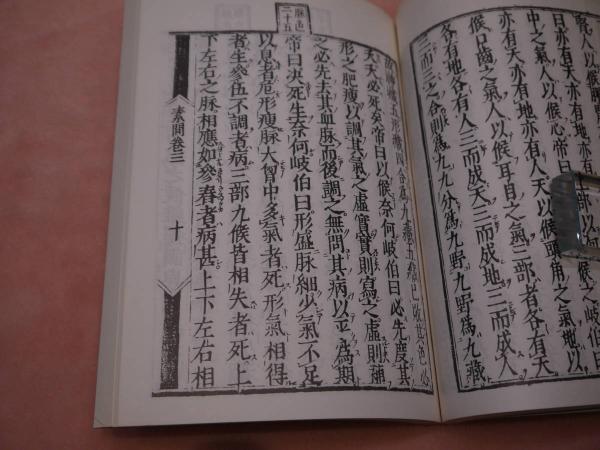 亦有天亦有地亦有人天以候肺地以候胸
中之氣人以候心帝曰上部以何候之岐伯曰
亦有天亦有地亦有人天以候頭角之氣地以
候口齒之氣人以候耳目之氣三部者各有天
各有地各有人三而成天三而成地三而成人
三而三之合則爲九九分爲九野九野爲九藏
二十五
故神藏五形藏四合爲九藏五藏已敗其色必
夭夭必死矣帝曰以候奈何岐伯曰必先度其
形之肥瘦以調其氣之虛實實則寫之虛則補
之必先去其血脉而後調之無問其病以平爲期
帝曰決死生奈何岐伯曰形盛脉細少氣不足
以息者危形瘦脉大胷中多氣者死形氣相得
者生參伍不調者病三部九候皆相失者死上
下左右之脉相應如參舂者病甚上下左右相
素問卷三
十